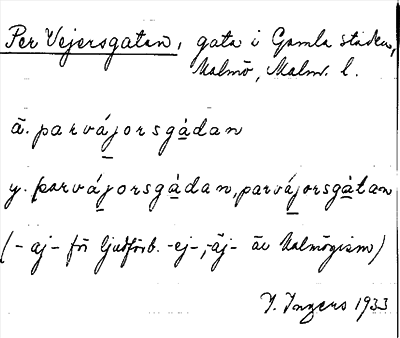 Per Vejersgatan, gata i Gamla staden,
Malmö, Malm. l.
ä. parvájorsgádan
y. parvájorsgádan, parvájorsgátan
(-aj- för ljudförb. -ej-, -äj- är Malmögism)
I. Ingers 1933